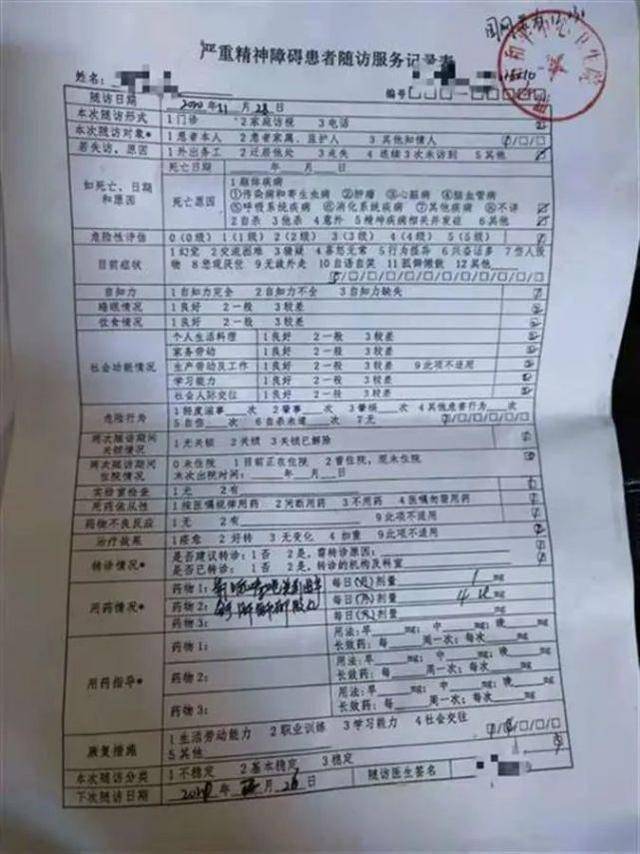 严重精神障碍患者随访服务记录表
姓名：
编号□□□-□□□□□
随访日期 年11月28日
本次随访形式 1门诊 2家庭访视 3电话
本次随访对象 1患者本人 2患者家属、监护人 3其他知情人
若失访，原因 1外出务工 2迁居他处 3走失 4连续3次未访到 5其他
如死亡，日期和原因 死亡日期 年 月 日
死亡原因 1躯体疾病
①传染病和寄生虫病 ②肿瘤 ③心脏病 ④脑血管病
⑤呼吸系统疾病 ⑥消化系统疾病 ⑦其他疾病 ⑧不详
2自杀 3他杀 4意外 5精神疾病相关并发症 6其他
危险性评估 0(0级) 1(1级) 2(2级) 3(3级) 4(4级) 5(5级)
目前症状 1幻觉 2交流困难 3猜疑 4喜怒无常 5行为怪异 6兴奋话多 7伤人毁
物 8悲观厌世 9无故外走 10自语自笑 11孤僻懒散 12其他
自知力 1自知力完全 2自知力不全 3自知力缺失
睡眠情况 1良好 2一般 3较差
饮食情况 1良好 2一般 3较差
社会功能情况 个人生活料理 1良好 2一般 3较差
家务劳动 1良好 2一般 3较差
生产劳动及工作 1良好 2一般 3较差 9此项不适用
学习能力 1良好 2一般 3较差
社会人际交往 1良好 2一般 3较差
危险行为 1轻度滋事 次 2肇事 次 3肇祸 次 4其他危害行为 次
5自伤 次 6自杀未遂 次 7无
两次随访期间关锁情况 1无关锁 2关锁 3关锁已解除
两次随访期间住院情况 0未住院 1目前正在住院 2曾住院，现未住院
末次出院时间： 年 月 日
实验室检查 1无 2有
用药依从性 1按医嘱规律用药 2间断用药 3不用药 4医嘱勿需用药
药物不良反应 1无 2有 9此项不适用
治疗效果 1痊愈 2好转 3无变化 4加重 9此项不适用
转诊情况 是否建议转诊：1否 2是，需转诊原因：
是否已转诊：1否 2是，转诊的机构及科室
用药情况 药物1： 每日(月)剂量 1 mg
药物2： 每日(月)剂量 mg
药物3： 每日(月)剂量 mg
用药指导 药物1： 用法：早 mg；中 mg；晚 mg
长效药：每 周一次；每次 mg
药物2： 用法：早 mg；中 mg；晚 mg
长效药：每 周一次；每次 mg
药物3： 用法：早 mg；中 mg；晚 mg
长效药：每 周一次；每次 mg
康复措施 1生活劳动能力 2职业训练 3学习能力 4社会交往
5其他
本次随访分类 1不稳定 2基本稳定 3稳定 随访医生签名
下次随访日期 年 月 日